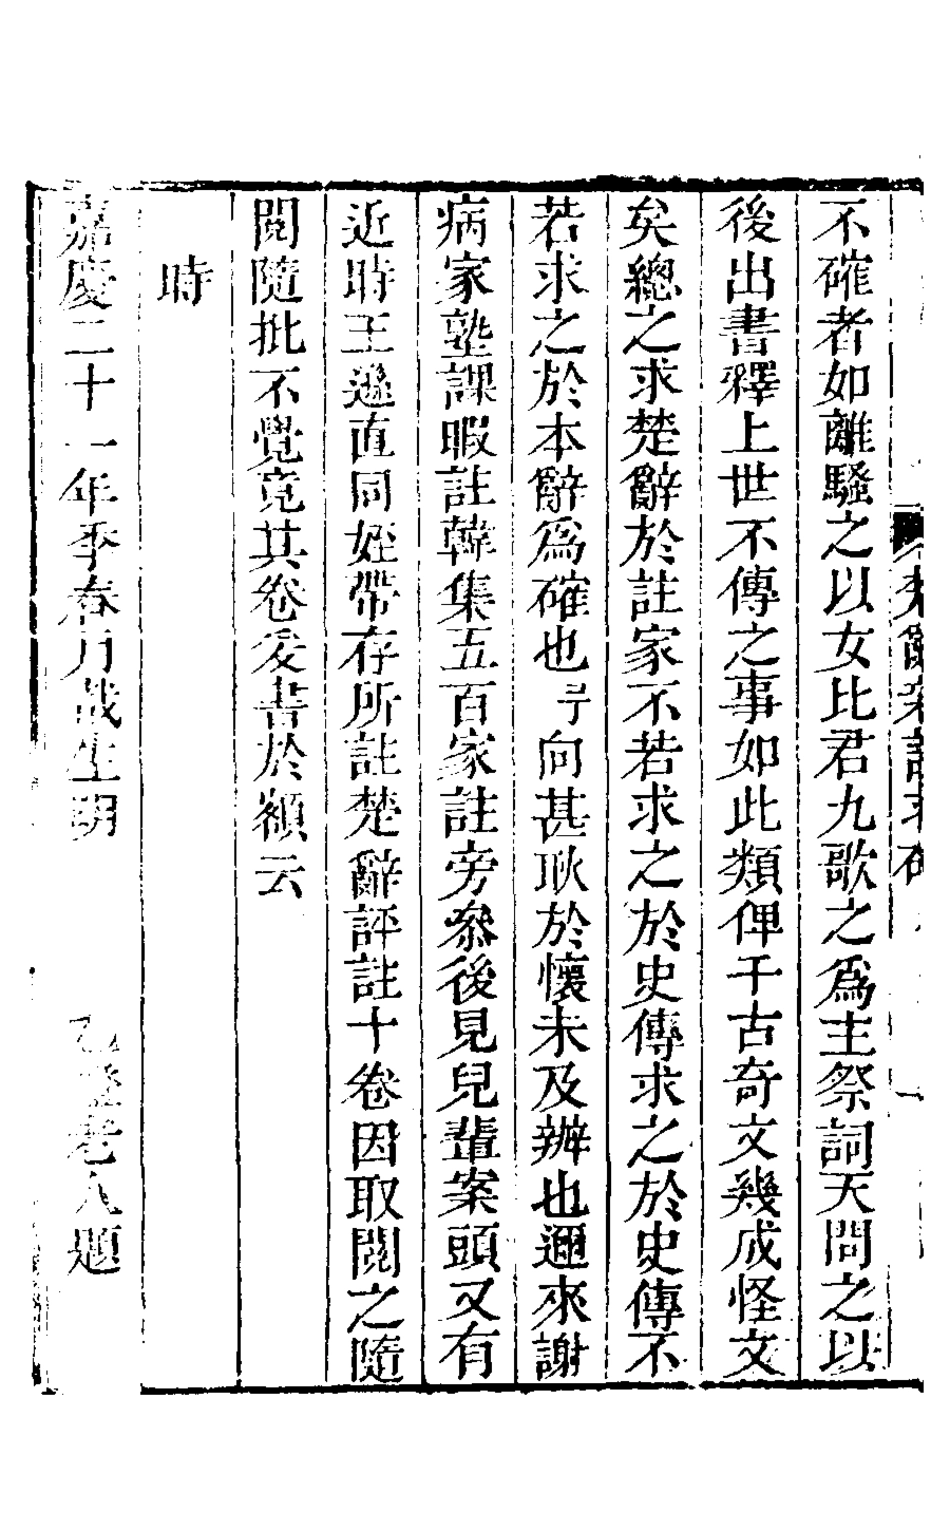 不確者如離騷之以女比君九歌之爲主祭詞天問之以
後出書釋上世不傳之事如此類俾千古奇文幾成怪文
矣總之求楚辭於註家不若求之於史傳求之於史傳不
若求之於本辭爲確也予向甚耿於懷未及辨也邇來謝
病家塾課暇註韓集五百家註旁叅後見兒輩案頭又有
近時王遜直同姪帶存所註楚辭評註十卷因取閱之隨
閱隨批不覺竟其卷爰書於額云
時
嘉慶二十一年季春月哉生明　　老人題